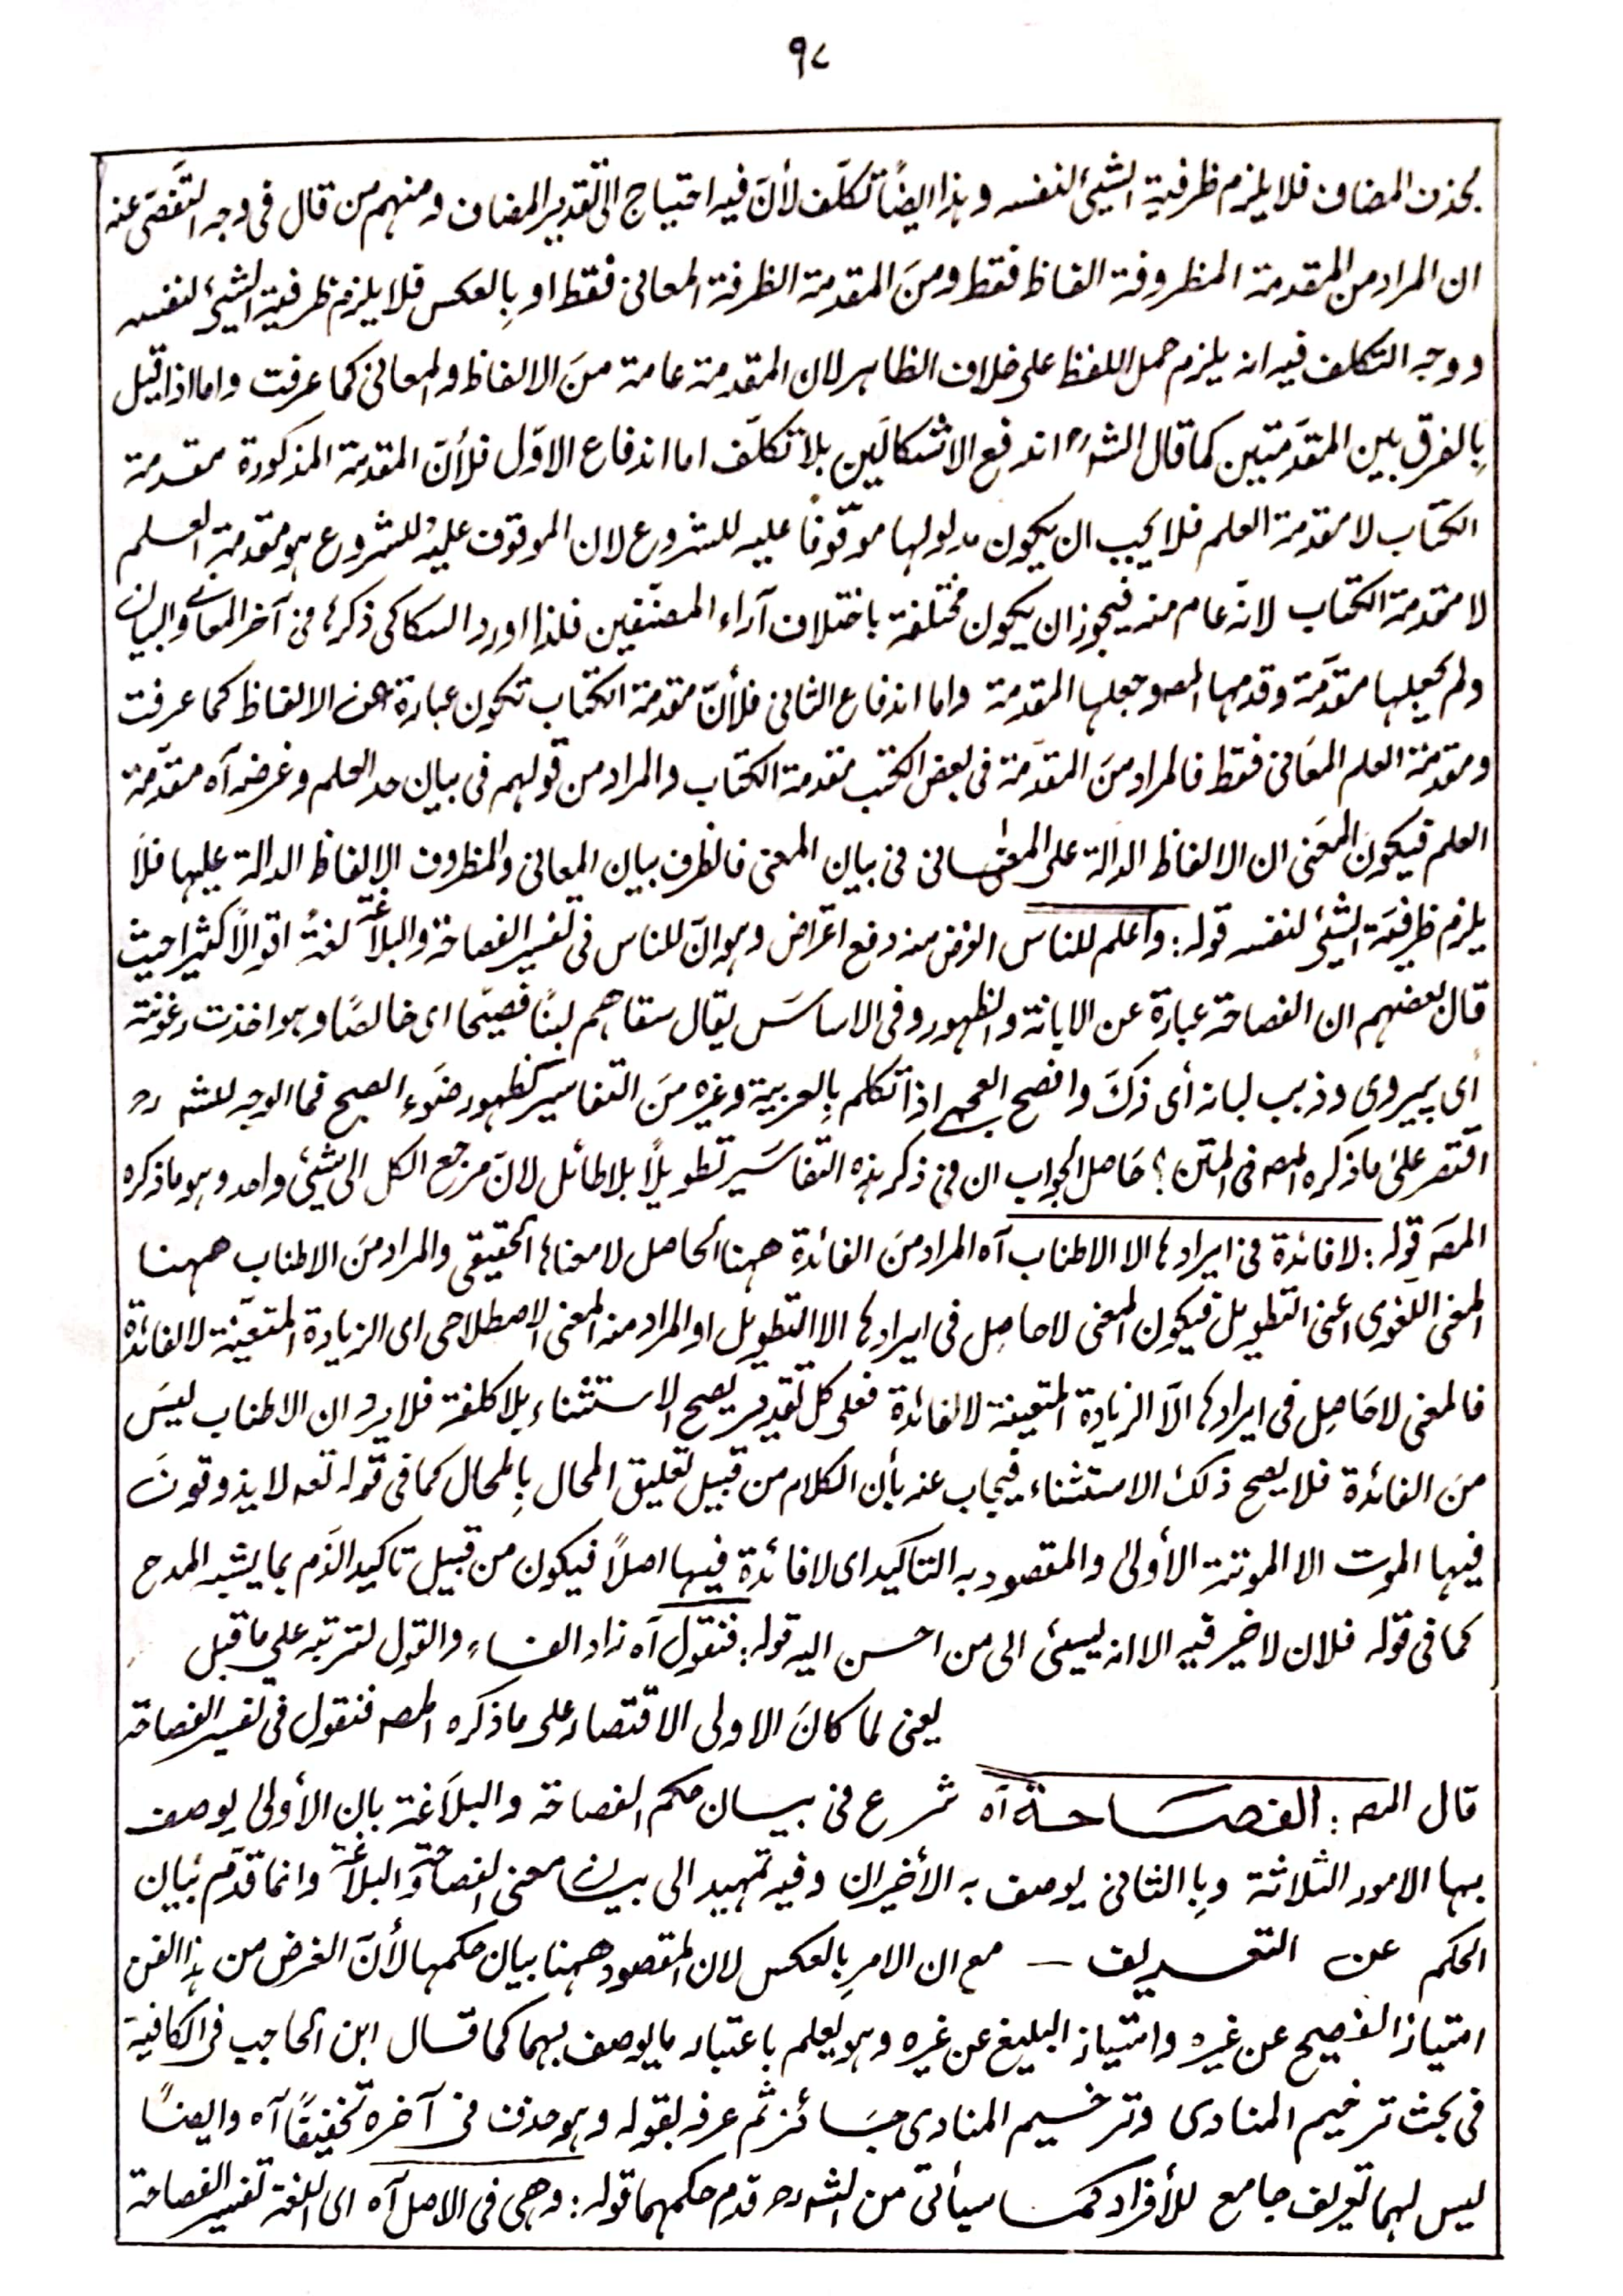 ٩٨
بحذف المضاف فلا يلزم ظرفية الشيئ لنفسه وهذا ايضًا تكلّف لأنّ فيه احتياج الى تقدير المضاف ومنهم من قال فى وجه التَّفَصّى عنه
ان المراد من المقدمة المظروفة الفاظ فقط ومنَ المقدمة الظرفة المعانى فقط او بِالعكس فلا يلزم ظرفية الشيئ لنفسه
ووجه التكلف فيه انه يلزم حمل اللفظ على خلاف الظاهر لان المقدمة عامة منَ الالفاظ والمعانى كما عرفت واما اذا قيل
بِالفرق بين المقدَّمتين كما قال الشہ رح اندفع الاشكالَين بلا تكلّف اما اندفاع الاوّل فلأنّ المقدمة المذكورة مقدمة
الكتاب لا مقدمة العلم فلا يجب ان يكون مدلولها موقوفًا عليه للشروع لان الموقوف عليهِ للشروع هو مقدمة العلم
لا مقدمة الكتاب لانّه عام منه فيجوز ان يكون مختلفة باختلاف آراء المصنّفين فلذا اورد السكاكى ذكرها فى آخر المعانى والبيان
ولم يجعلها مقدَّمة وقدمها المصہ وجعلها المقدمة واما اندفاع الثانى فلأنّ مقدمة الكتاب تكون عبارة عن الالفاظ كما عرفت
ومقدمة العلم المعَانى فقط فالمراد منَ المقدّمة فى بعض الكتب مقدمة الكتاب والمراد من قولهم فى بيان حد العلم وغرضه آه مقدّمة
العلم فيكونَ المعَنى ان الالفاظ الدالة على المعانى فى بيان المعنى فالظرف بيان المعانى والمظروف الالفاظ الدالة عليها فلَا
يلزم ظرفيّة الشيئ لنفسه قوله: واعلم للناس الغرض منه دفع اعتراض وهو انّ للناس فى تفسير الفصاحة والبلاغة لغةً اقوالًا كثيرا حيث
قال بعضهم ان الفصاحة عبارة عن الابانة والظهور وفى الاساسَ يقال سقاهم لبنًا فصيحًا اى خالصًا وهو اخذت رغوته
أى بيروى وذهب لبانه أى ذكَ وافصح العجمى اذا تكلم بِالعربية وغيره منَ التفاسير كظهور ضَوء الصبح فما الوجه للشہ رح
اقتصر علىٰ ما ذكره المصہ فى المتن؟ حَاصل الجواب ان فى ذكر هذه التفاسَير تطويلًا بلا طائل لانّ مرجع الكل الى شيئ واحد وهو ما ذكره
المصَہ قوله: لا فائدة فى ايرادها الا الاطناب آه المراد منَ الفائدةِ ههنا الحاصل لا معناها الحقيقى والمراد منَ الاطناب ههنا
المعنى اللغوى اعنى التطويل فيكون المعنى لا حاصِل فى ايرادها الا التطويل او المراد منه المعنى الاصطلاحى اى الزيادة المتعيّنة لا لفائدة
فالمعنى لا حَاصِل فى ايرادها الّا الزيادة المتعينة لا لفائدة فعلى كل تقدير يصح الاستثناء بلا كلفة فلا يرد ان الاطناب ليسَ
منَ الفائدة فلا يصح ذلك الاستثناء فيجاب عنه بأن الكلام من قبيل تعليق المحال بِالمحال كما فى قوله تعہ لا يذوقونَ
فيها الموت الا الموتة الأولى والمقصود به التاكيد اى لا فائدة فيها اصلًا فيكون من قبيل تاكيد الذَم بما يشبه المدح
كما فى قوله فلان لا خير فيه الا انه ليسئى الى من احسن اليه قوله: فنقول آه زاد الفاءِ والقول لترتبه على ما قبل
يعنى لما كانَ الاولى الاقتصار على ما ذكره المصہ فنقول فى تفسير الفصاحة
قال المصہ: الفصَاحة آه شرع فى بيان حكم الفصاحة والبلَاغة بان الأولى يوصف
بها الامور الثلاثة وبِالثانى يوصف به الأخيران وفيه تمهيد الى بيان معنى الفصاحة والبلاغة وانما قدّم بَيان
الحكم عن التعريف — مع ان الامر بِالعكس لان المقصود ههنا بيان حكمها لأنّ الغرض من هذا الفن
امتياز الفصيح عن غيره وامتياز البليغ عن غيره وهو يُعلم باعتبار ما يوصف بهما كما قال ابن الحاجب فى الكافية
فى بحث ترخيم المنادى وترخيم المنادى جَائز ثم عرفه بقوله وهو حذف فى آخره تخفيفًا آه وايضًا
ليس لهما تعريف جامع للأفراد كما سيأتى من الشہ رح قدم حكمهما قوله: وهى فى الاصل آه اى اللغة تفسير الفصاحة